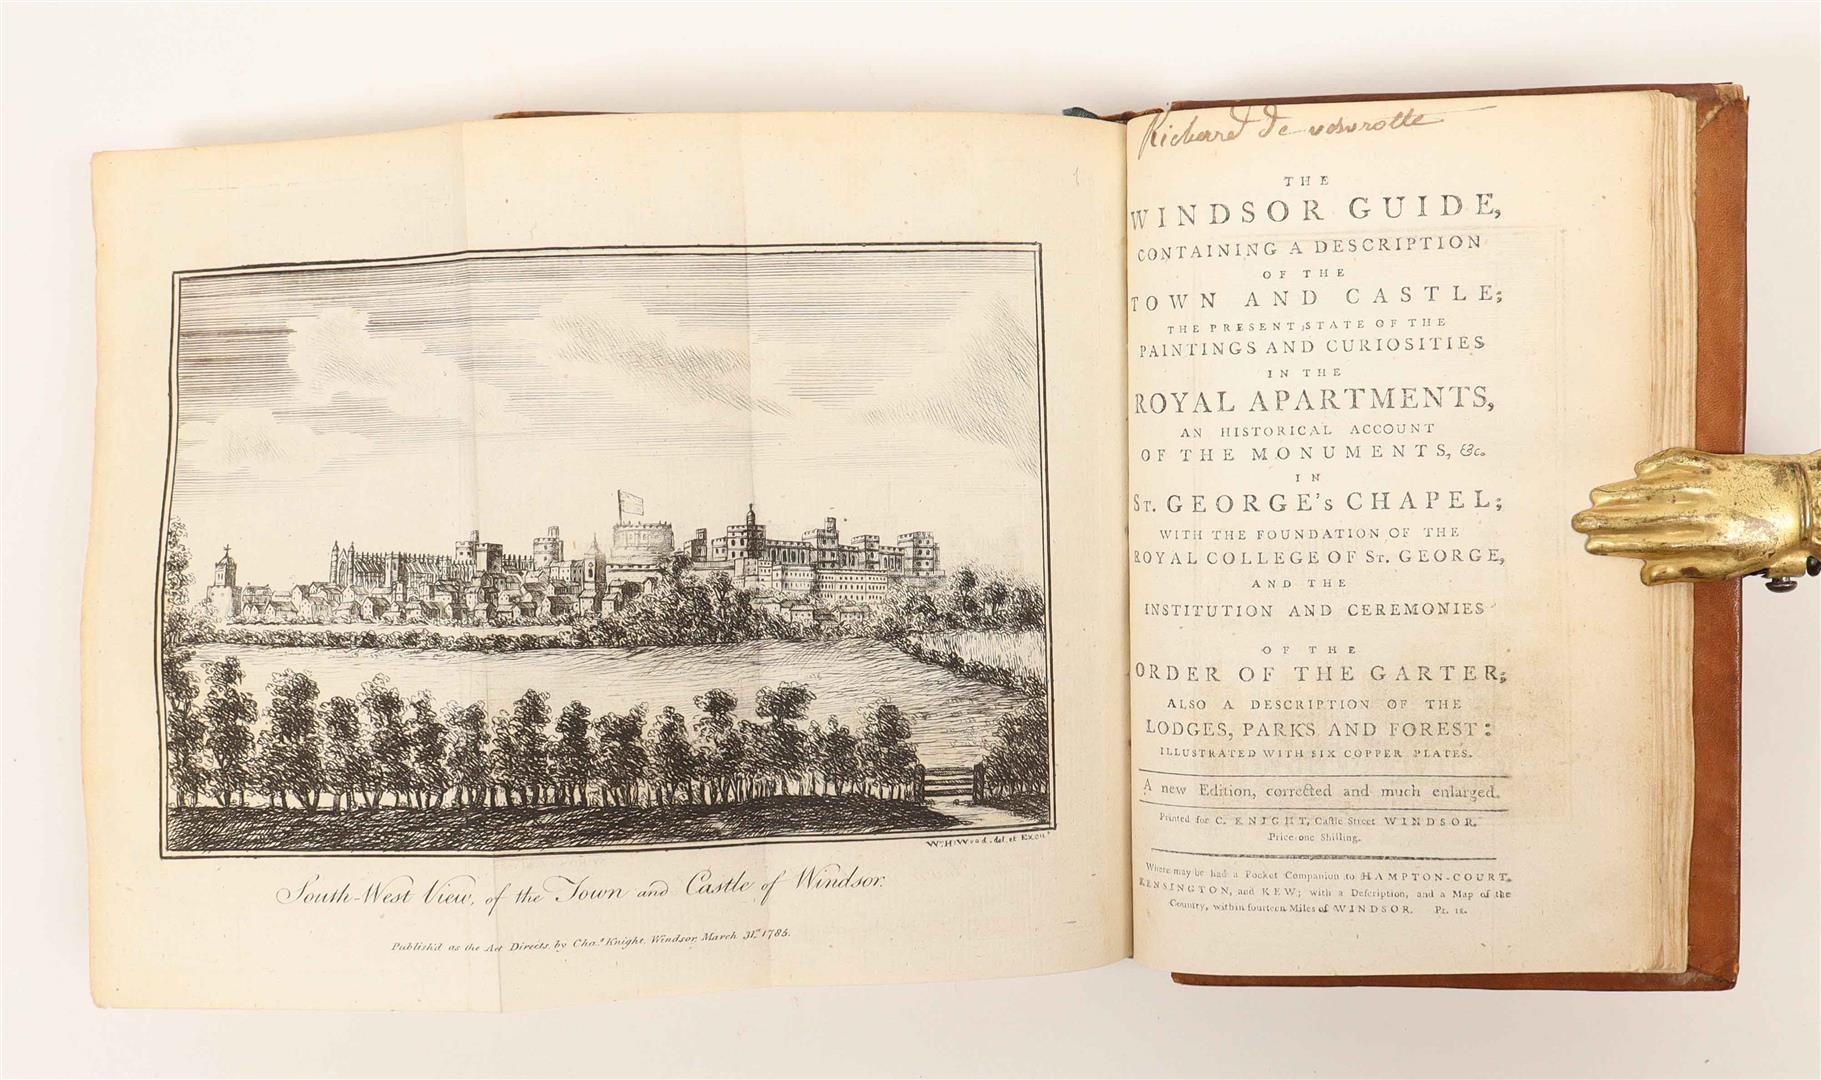 Wm. H. Wood. del. et Excut.
South-West View, of the Town and Castle of Windsor.
Publish'd as the Act Directs, by Chas. Knight, Windsor, March 31st 1785.
Richard de
THE
WINDSOR GUIDE,
CONTAINING A DESCRIPTION
OF THE
TOWN AND CASTLE;
THE PRESENT STATE OF THE
PAINTINGS AND CURIOSITIES
IN THE
ROYAL APARTMENTS,
AN HISTORICAL ACCOUNT
OF THE MONUMENTS, &c.
IN
ST. GEORGE's CHAPEL;
WITH THE FOUNDATION OF THE
ROYAL COLLEGE OF ST. GEORGE,
AND THE
INSTITUTION AND CEREMONIES
OF THE
ORDER OF THE GARTER;
ALSO A DESCRIPTION OF THE
LODGES, PARKS AND FOREST:
ILLUSTRATED WITH SIX COPPER PLATES.
A new Edition, corrected and much enlarged.
Printed for C. KNIGHT, Castle Street WINDSOR.
Price one Shilling.
Where may be had a Pocket Companion to HAMPTON-COURT,
KENSINGTON, and KEW; with a Description, and a Map of the
Country, within fourteen Miles of WINDSOR. Pr. 1s.